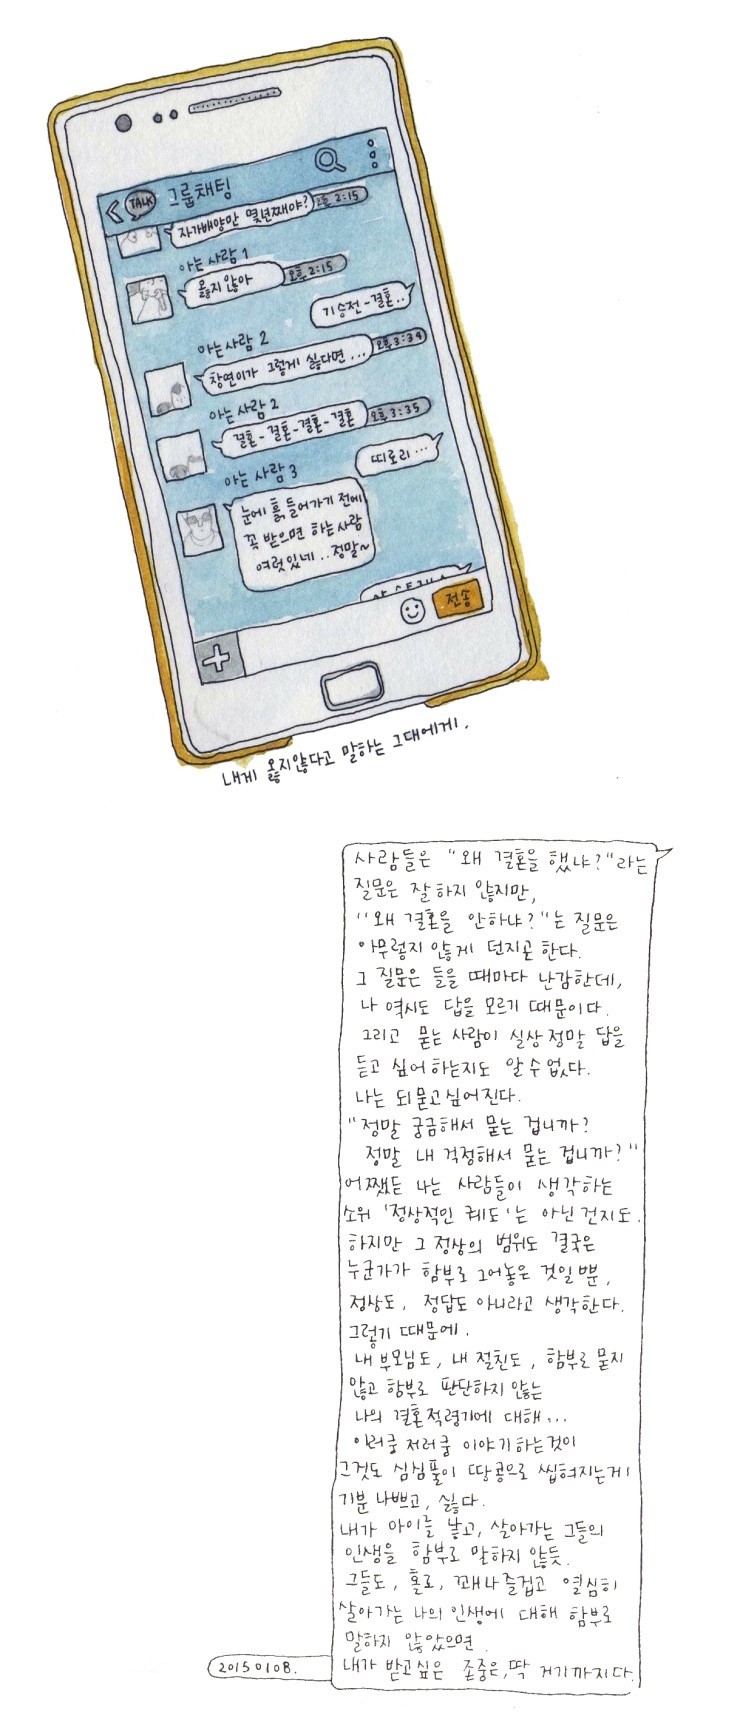 TALK 그룹채팅
자가배양만 몇년째야? 오후 2:15
아는사람 1
옳지않아 오후 2:15
기승전-결혼..
아는사람 2
창연이가 그렇게 싫다면... 오후 3:34
아는사람 2
결혼-결혼-결혼-결혼 오후 3:35
띠로리...
아는 사람 3
눈에 흙 들어가기 전에
꼭 받으면 하는 사람
여럿있네..정말~
전송
내게 옳지않다고 말하는 그대에게.
사람들은 "왜 결혼을 했냐?"라는
질문은 잘 하지 않지만,
"왜 결혼을 안하냐?"는 질문은
아무렇지 않게 던지곤 한다.
그 질문은 들을 때마다 난감한데,
나 역시도 답을 모르기 때문이다.
그리고 묻는 사람이 실상 정말 답을
듣고 싶어 하는지도 알 수 없다.
나는 되묻고싶어진다.
"정말 궁금해서 묻는 겁니까?
정말 내 걱정해서 묻는 겁니까?"
어쨌든 나는 사람들이 생각하는
소위 '정상적인 궤도'는 아닌 건지도.
하지만 그 정상의 범위도 결국은
누군가가 함부로 그어놓은 것일 뿐,
정상도, 정답도 아니라고 생각한다.
그렇기 때문에.
내 부모님도, 내 절친도, 함부로 묻지
않고 함부로 판단하지 않는
나의 결혼적령기에 대해...
이러쿵 저러쿵 이야기하는것이
그것도 심심풀이 땅콩으로 씹혀지는게
기분 나쁘고, 싫다.
내가 아이를 낳고, 살아가는 그들의
인생을 함부로 말하지 않듯.
그들도, 홀로, 꽤나 즐겁고 열심히
살아가는 나의 인생에 대해 함부로
말하지 않았으면.
내가 받고싶은 존중은, 딱 거기까지다.
20150108.